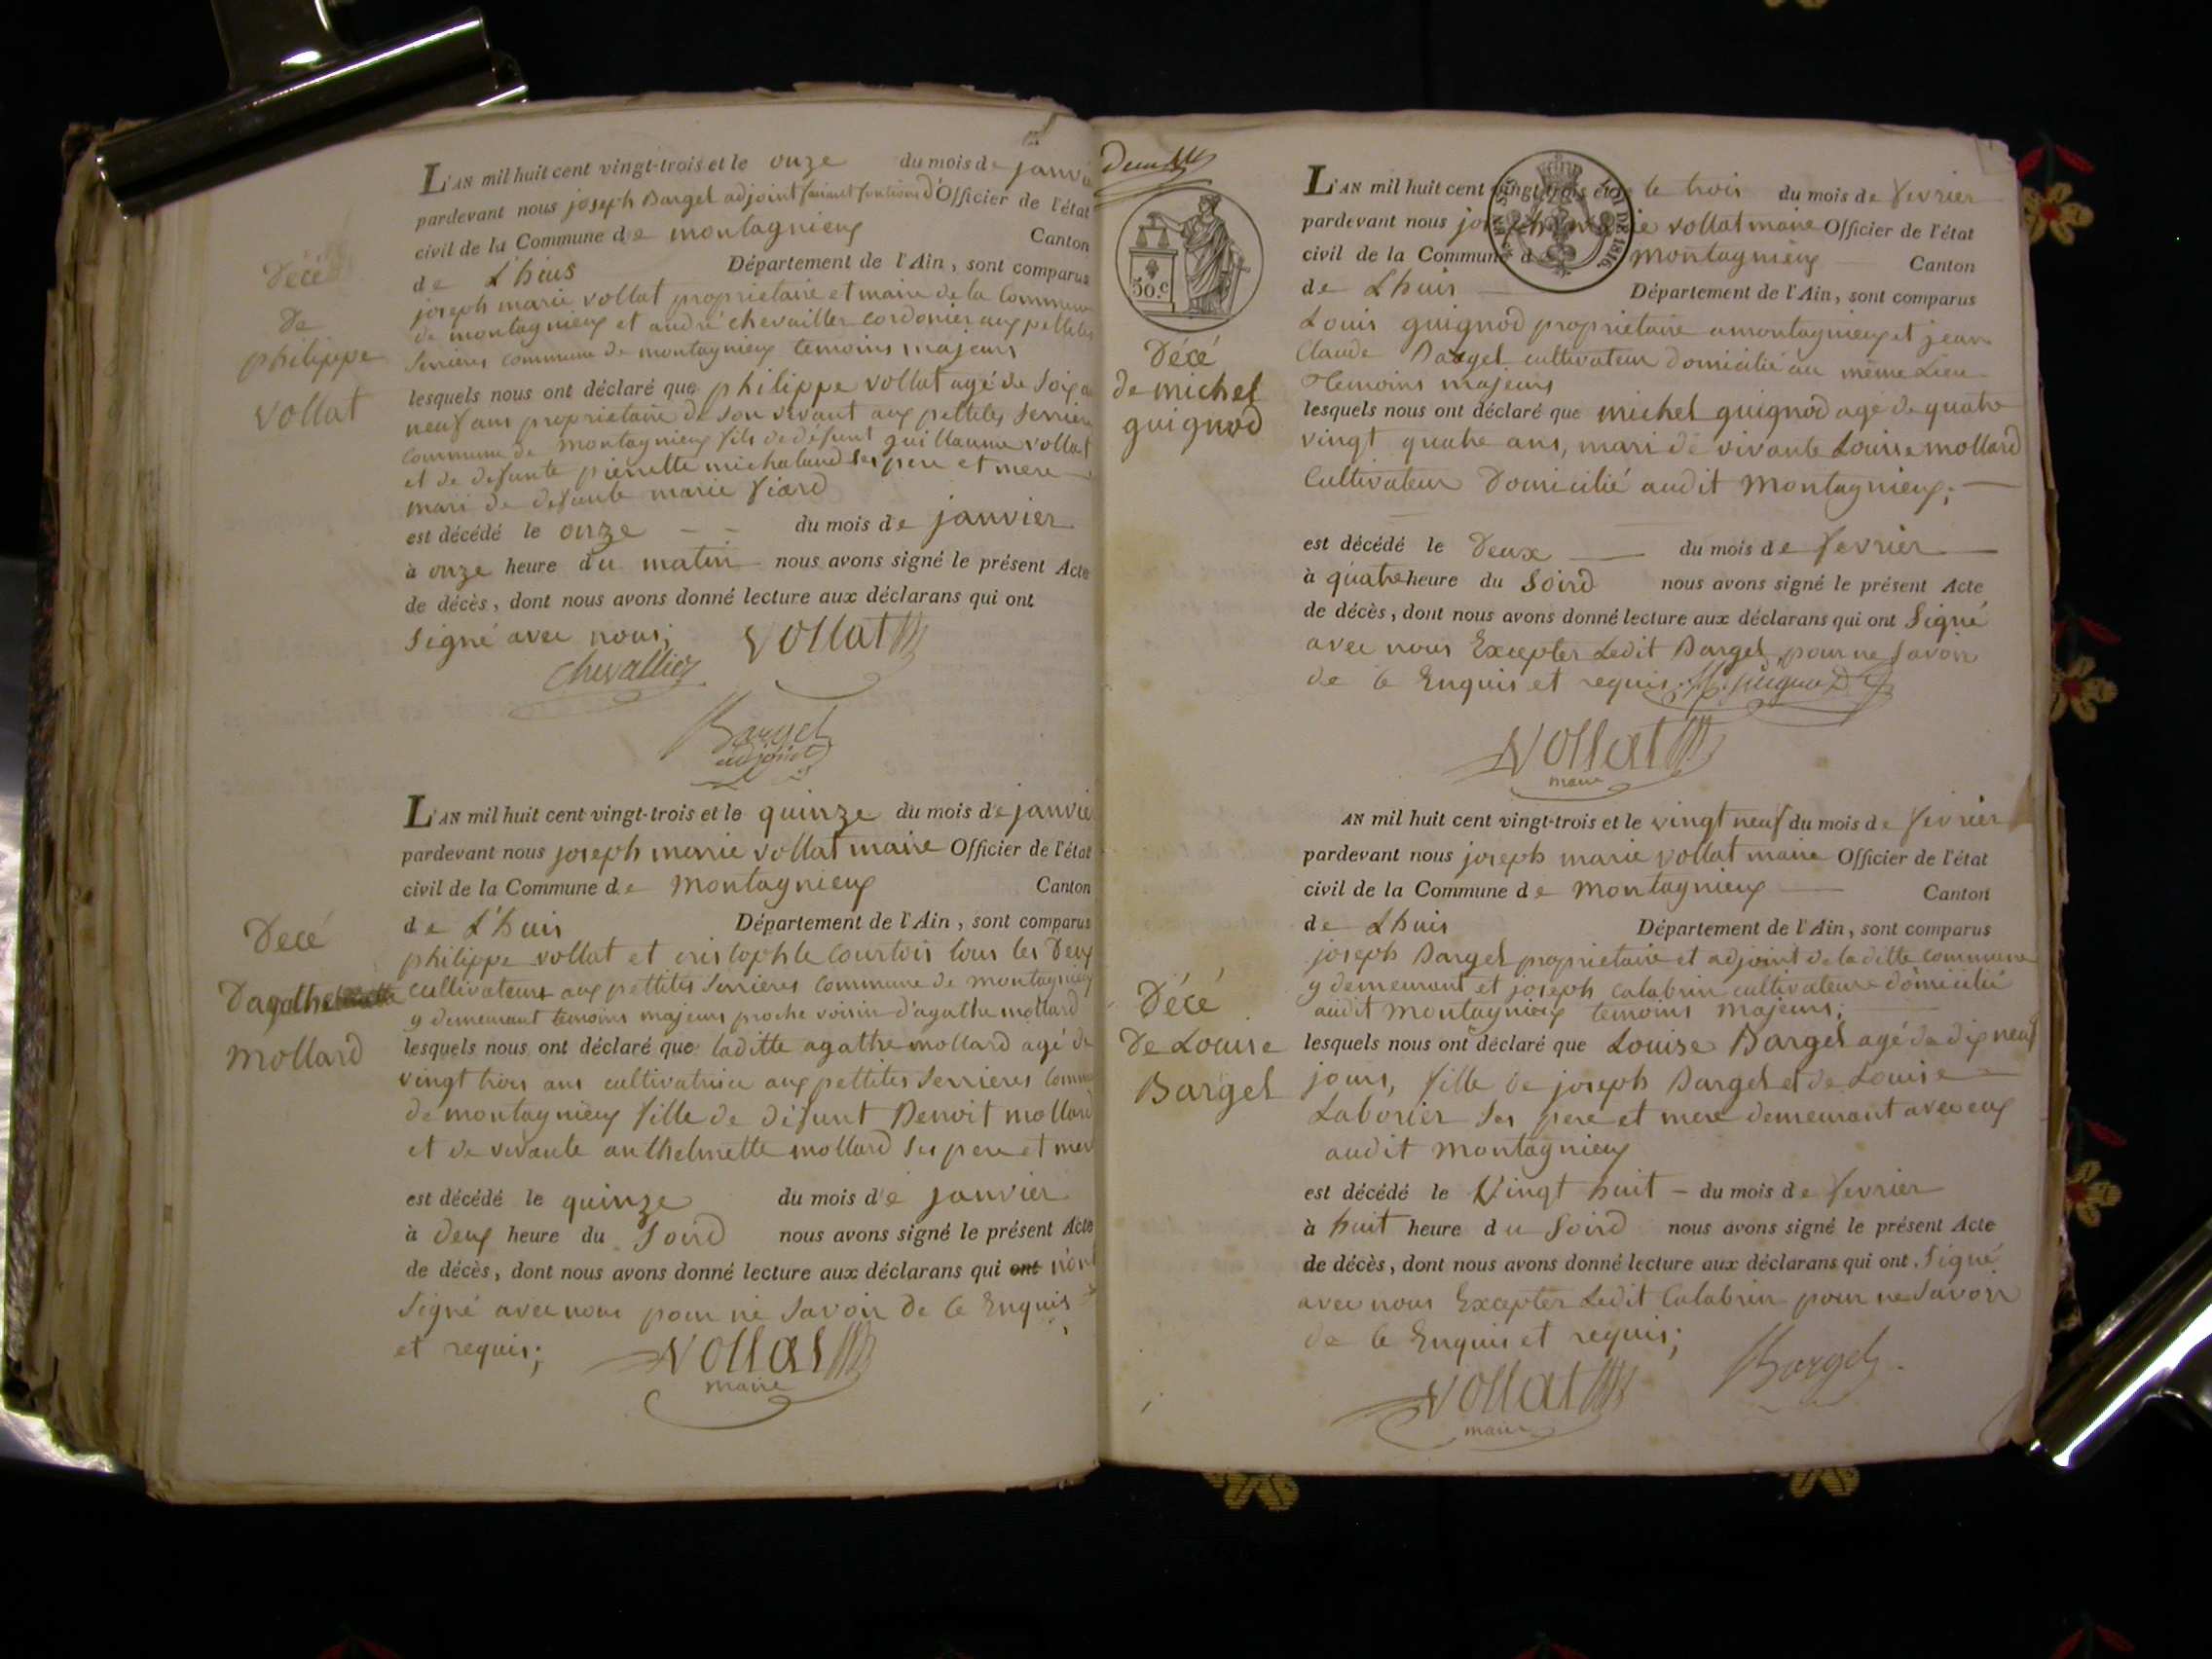 L'AN mil huit cent vingt-trois et le onze du mois de janvi
pardevant nous joseph Bargel adjoint faisant fontion d'Officier de l'état
civil de la Commune de montagnieux Canton
de L'huis Département de l'Ain, sont comparus
joseph marie vollat proprietaire et maire de la Commune
de montagnieux et andré chevallier cordonier aux pettites
Serrieres commune de montagnieux temoins majeurs
lesquels nous ont déclaré que philippe vollat agé de Soixa
neuf ans proprietaire de Son vivant aux pettites Serriere
commune de montagnieux fils de défunt guillaume vollat
et de defunte pierrette michaland Ses pere et mere
mari de defunte marie fiard
est décédé le onze du mois de janvier
à onze heure du matin nous avons signé le présent Acte
de décès, dont nous avons donné lecture aux déclarans qui ont
Signé avec nous; vollat
chevallier
Bargel
adjoint
Décé
De
philippe
vollat
L'AN mil huit cent vingt-trois et le quinze du mois de janvie
pardevant nous joseph marie vollat maire Officier de l'état
civil de la Commune de montagnieux Canton
de L'huis Département de l'Ain, sont comparus
philippe vollat et cristophle Courtois tous les Deux
cultivateurs aux pettites Serrieres Commune de montagnieux
y demeurant temoins majeurs proche voisin d'agathe mollard
lesquels nous ont déclaré que laditte agathe mollard agé de
vingt trois ans cultivatrice aux pettites Serrieres Commu
de montagnieux fille de défunt Benoit mollard
et de vivante anthelmette mollard Ses pere et mer
est décédé le quinze du mois de janvier
à deux heure du Soird nous avons signé le présent Acte
de décès, dont nous avons donné lecture aux déclarans qui ont n'ont
Signé avec nous pour ne Savoir de ce Enquis
et requis; vollat
maire
Decé
Dagathe
mollard
50.c
Décé
de michel
guignod
L'AN mil huit cent vingt-trois et le trois du mois de fevrier
pardevant nous joseph marie vollat maire Officier de l'état
civil de la Commune de montagnieux Canton
de Lhuis Département de l'Ain, sont comparus
Louis guignod proprietaire a montagnieux et jean
Claude Bargel cultivateur Domicilié au même Lieu
temoins majeurs
lesquels nous ont déclaré que michel guignod agé de quatre
vingt quatre ans, mari de vivante Louise mollard
Cultivateur Domicilié audit montagnieux;
est décédé le Deux du mois de fevrier
à quatre heure du Soird nous avons signé le présent Acte
de décès, dont nous avons donné lecture aux déclarans qui ont Signé
avec nous Excepter Ledit Bargel pour ne Savoir
de ce Enquis et requis. guignod
vollat
maire
AN mil huit cent vingt-trois et le vingt neuf du mois de fevrier
pardevant nous joseph marie vollat maire Officier de l'état
civil de la Commune de montagnieux Canton
de Lhuis Département de l'Ain, sont comparus
joseph Bargel proprietaire et adjoint de laditte commune
y demeurant et joseph Calabrin cultivateur domicilié
audit montagnieux temoins majeurs;
lesquels nous ont déclaré que Louise Bargel agé de dix neuf
jours, fille de joseph Bargel et de Louise
Laborier Ses pere et mere demeurant avec eux
audit montagnieux
est décédé le Vingt huit du mois de fevrier
à huit heure du Soird nous avons signé le présent Acte
de décès, dont nous avons donné lecture aux déclarans qui ont Signé
avec nous Excepter Ledit Calabrin pour ne Savoir
de ce Enquis et requis;
vollat Bargel
maire
Décé
De Louise
Bargel